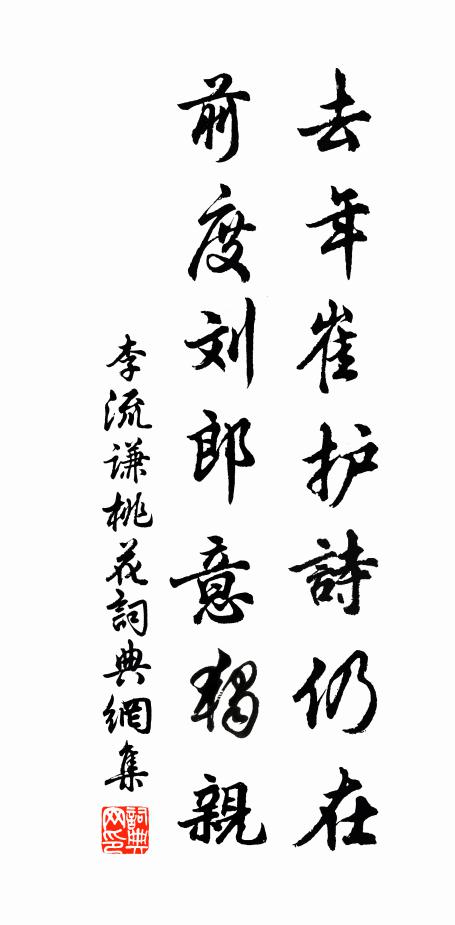 去年崔护詩仍在
前度刘郎意獨親
李流谦桃花詞典網集
詞典网印